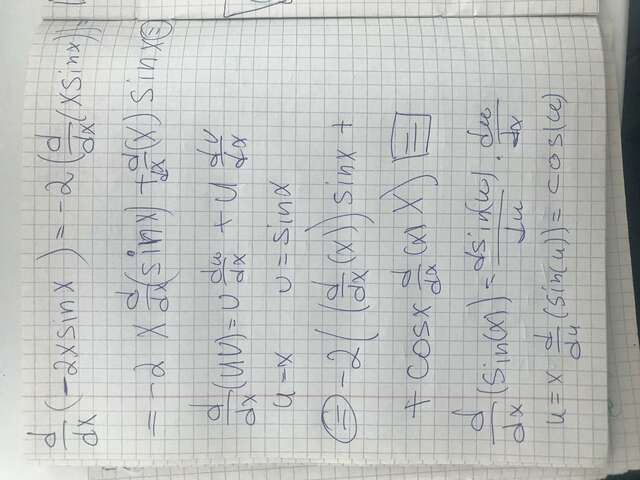 d/dx (-2x sinx) = -2 (d/dx (x sinx)) =
= -2 x d/dx (sinx) + d/dx (x) sinx =
d/dx (uv) = v du/dx + u dv/dx
u=x v=sinx
= -2 ((d/dx (x)) sinx +
+ cosx d/dx (x) x) =
d/dx (sin(x)) = dsin(u)/du · du/dx
u=x d/du (sin(u)) = cos(u)